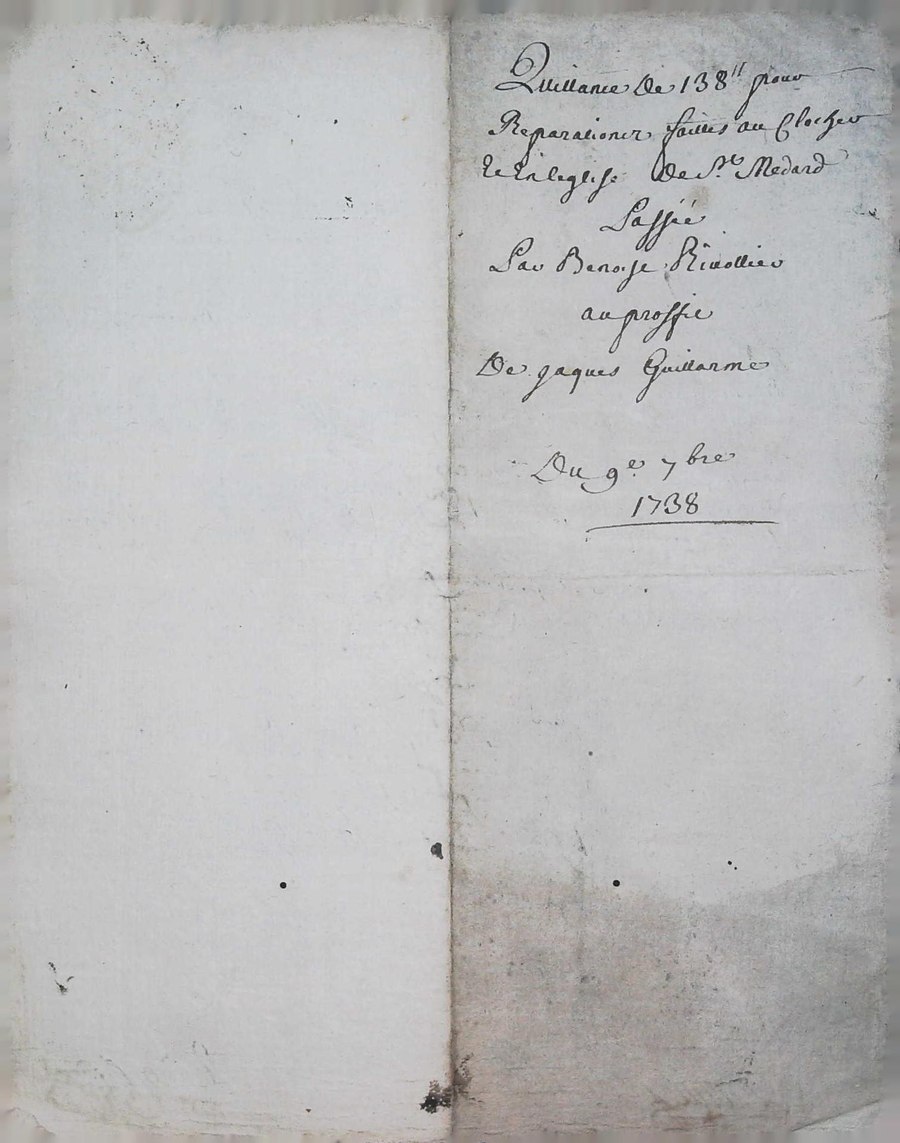 Quittance De 138ʰ pour
Reparations faittes au Clocher
Et En leglise De Sᵗ Medard
Passée
Par Benoist Rivollier
au proffit
De jaques Guillarme
Du 9ᵉ 7bre
1738